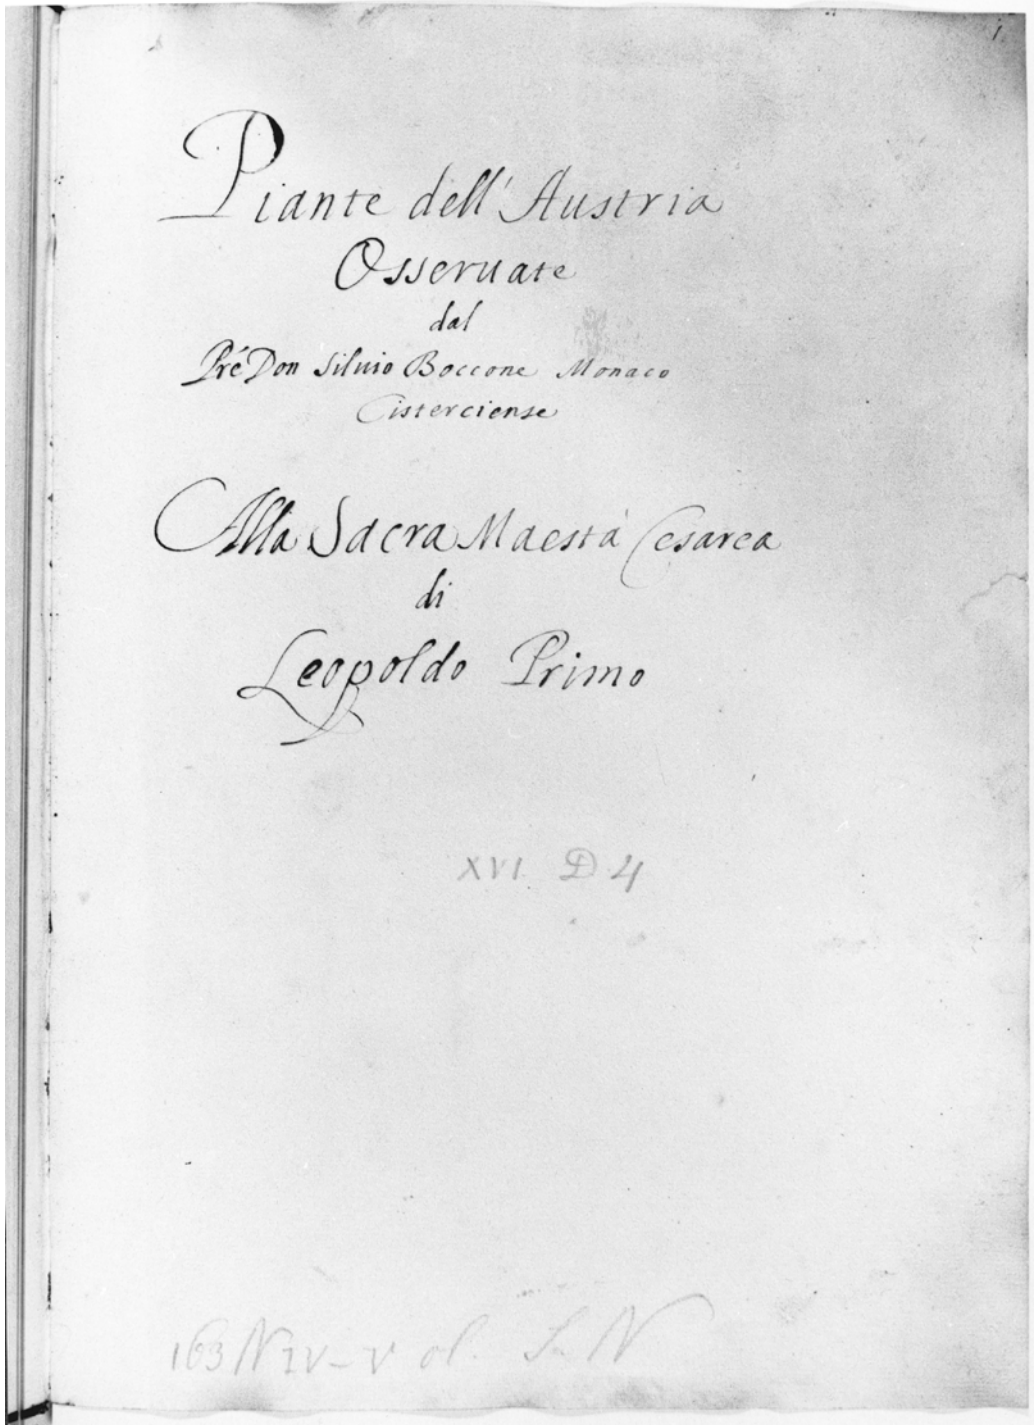 1
Piante dell'Austria
Osseruate
dal
Pré Don Siluio Boccone Monaco
Cisterciense
Alla Sacra Maestà Cesarea
di
Leopoldo Primo
XVI. D 4
163 N IV - V ol. S. N